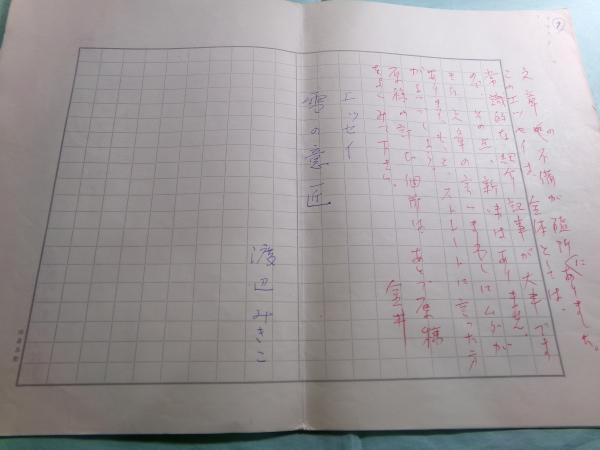 文章の不備が随所にありました。
このエッセイは、全体としては、
常識的な紹介記事が大半です
が、その点、新味はありません。
また、文章の言いまわしにムリが
あります。もっとストレートに言った方
がよいでしょう。
原稿の訂正個所は、あとで原稿
をよくみて下さい。
金井
エッセイ
雪の意匠
渡辺みきこ